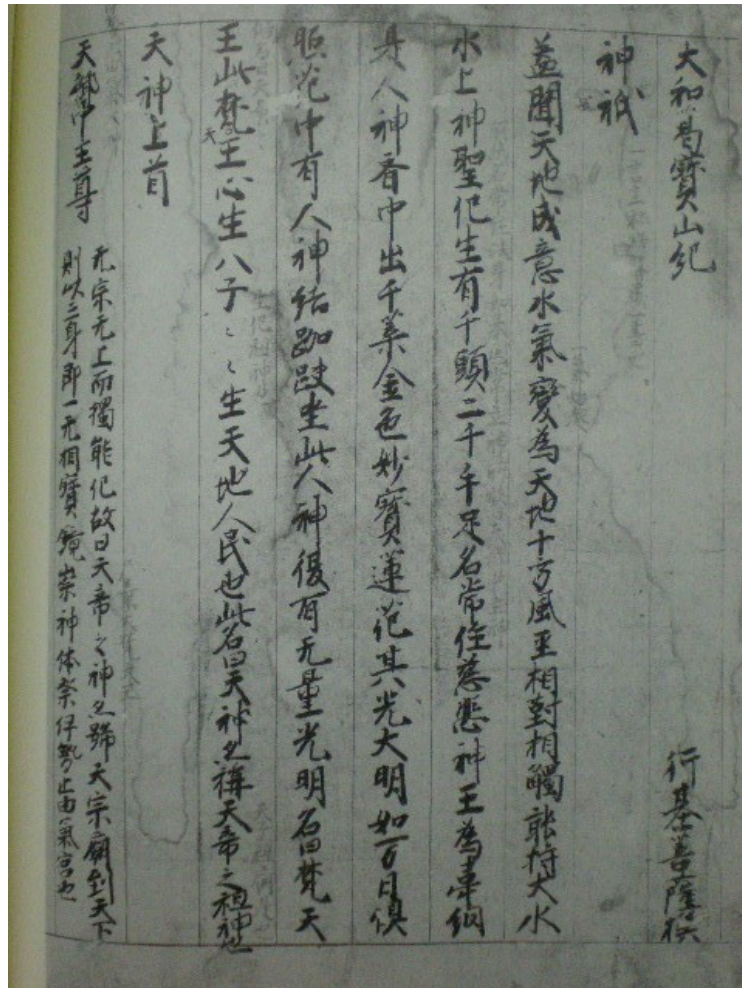 大和葛寶山紀
行基菩薩撰
神祇
蓋聞天地成意水氣變為天地十方風至相對相觸能持大水
水上神聖化生有千頭二千手足名常住慈悲神王為葦綱
是人神齋中出千葉金色妙寶蓮花其光大明如万日俱
照花中有人神結跏趺坐此人神復有无量光明名曰梵天
王此梵天王心生八子〻〻生天地人民也此名曰天神之稱天帝之祖神也
天神上首
天御中主尊
无宗无上而獨能化故曰天帝之神之號天宗廟到天下
則以三身即一无相寶鏡崇神体祭伊勢止由氣宮也